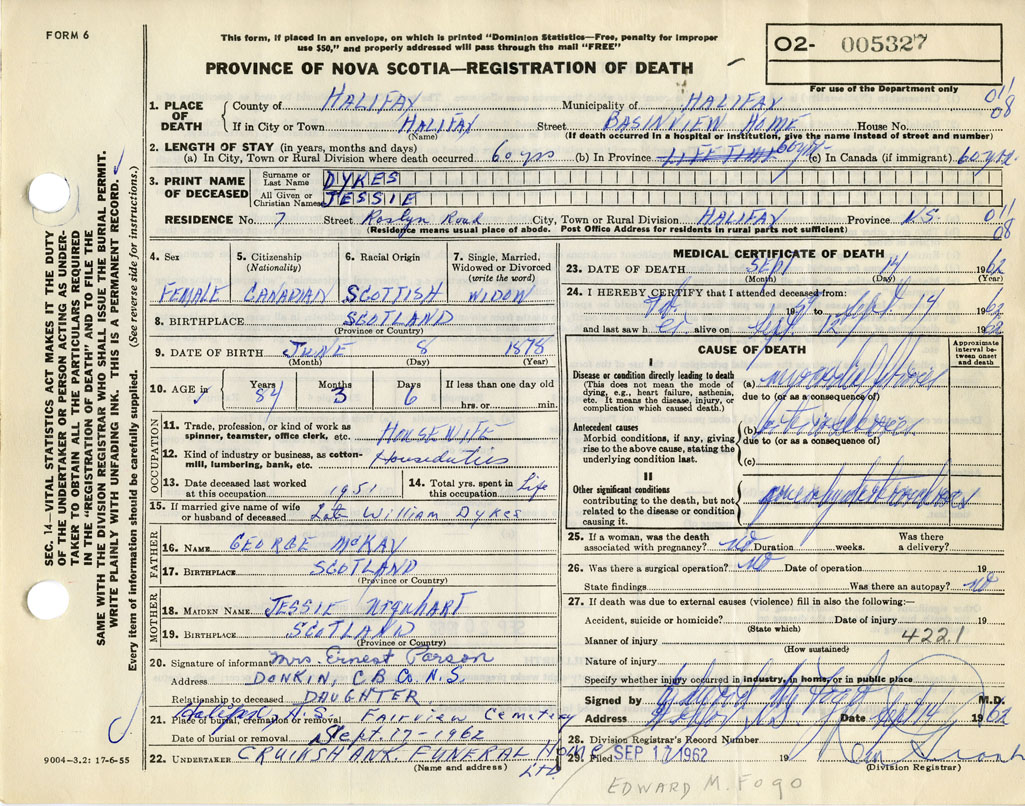 FORM 6
This form, if placed in an envelope, on which is printed "Dominion Statistics—Free, penalty for improper
use $50," and properly addressed will pass through the mail "FREE"
PROVINCE OF NOVA SCOTIA—REGISTRATION OF DEATH
02- 005327
For use of the Department only
011
08
1. PLACE OF DEATH { County of HALIFAX Municipality of HALIFAX
If in City or Town HALIFAX (Name) Street BASINVIEW HOME House No.
(If death occurred in a hospital or institution, give the name instead of street and number)
2. LENGTH OF STAY (in years, months and days)
(a) In City, Town or Rural Division where death occurred 60 yrs (b) In Province LIFETIME 60 yr. (c) In Canada (if immigrant) 60 yr.
3. PRINT NAME OF DECEASED { Surname or Last Name DYKES
All Given or Christian Names JESSIE
RESIDENCE No. 7 Street Roslyn Road City, Town or Rural Division HALIFAX Province N.S. 011
08
(Residence means usual place of abode. Post Office Address for residents in rural parts not sufficient)
4. Sex FEMALE
5. Citizenship (Nationality) CANADIAN
6. Racial Origin SCOTTISH
7. Single, Married, Widowed or Divorced (write the word) WIDOW
8. BIRTHPLACE SCOTLAND
(Province or Country)
9. DATE OF BIRTH JUNE 8 1878
(Month) (Day) (Year)
10. AGE Years 84 Months 3 Days 6 If less than one day old
hrs. or min.
OCCUPATION
11. Trade, profession, or kind of work as spinner, teamster, office clerk, etc. HOUSEWIFE
12. Kind of industry or business, as cotton-mill, lumbering, bank, etc. Houseduties
13. Date deceased last worked at this occupation 1951
14. Total yrs. spent in this occupation Life
15. If married give name of wife or husband of deceased Late William Dykes
FATHER
16. NAME GEORGE McKAY
17. BIRTHPLACE SCOTLAND
(Province or Country)
MOTHER
18. MAIDEN NAME JESSIE Urquhart
19. BIRTHPLACE SCOTLAND
(Province or Country)
20. Signature of informant Mrs. Ernest Parson
Address DONKIN, C.B. Co. N.S.
Relationship to deceased DAUGHTER
21. Place of burial, cremation or removal N.S. Fairview Cemetery
Date of burial or removal Sept. 17-1962
22. UNDERTAKER CRUIKSHANK FUNERAL Home Ltd.
(Name and address)
9004-3.2: 17-6-55
MEDICAL CERTIFICATE OF DEATH
23. DATE OF DEATH SEPT 14 1962
(Month) (Day) (Year)
24. I HEREBY CERTIFY that I attended deceased from:
19 to Sept 14 1962
and last saw her alive on Sept 1962
CAUSE OF DEATH
Approximate interval between onset and death
I
Disease or condition directly leading to death
(This does not mean the mode of dying, e.g., heart failure, asthenia, etc. It means the disease, injury, or complication which caused death.)
(a)
due to (or as a consequence of)
Antecedent causes
Morbid conditions, if any, giving rise to the above cause, stating the underlying condition last.
(b)
due to (or as a consequence of)
(c)
II
Other significant conditions
contributing to the death, but not related to the disease or condition causing it.
25. If a woman, was the death associated with pregnancy? no Duration weeks. Was there a delivery?
26. Was there a surgical operation? no Date of operation 19
State findings Was there an autopsy? no
27. If death was due to external causes (violence) fill in also the following:—
Accident, suicide or homicide? Date of injury 19
(State which)
Manner of injury 4221
(How sustained)
Nature of injury
Specify whether injury occurred in industry, in home, or in public place
Signed by M.D.
Address Date Sept 14 1962
28. Division Registrar's Record Number
29. Filed SEP 17 1962 19
(Division Registrar)
EDWARD M. FOGO
SEC. 14—VITAL STATISTICS ACT MAKES IT THE DUTY
OF THE UNDERTAKER OR PERSON ACTING AS UNDER-
TAKER TO OBTAIN ALL THE PARTICULARS REQUIRED
IN THE "REGISTRATION OF DEATH" AND TO FILE THE
SAME WITH THE DIVISION REGISTRAR WHO SHALL ISSUE THE BURIAL PERMIT.
WRITE PLAINLY WITH UNFADING INK. THIS IS A PERMANENT RECORD.
Every item of information should be carefully supplied. (See reverse side for instructions.)